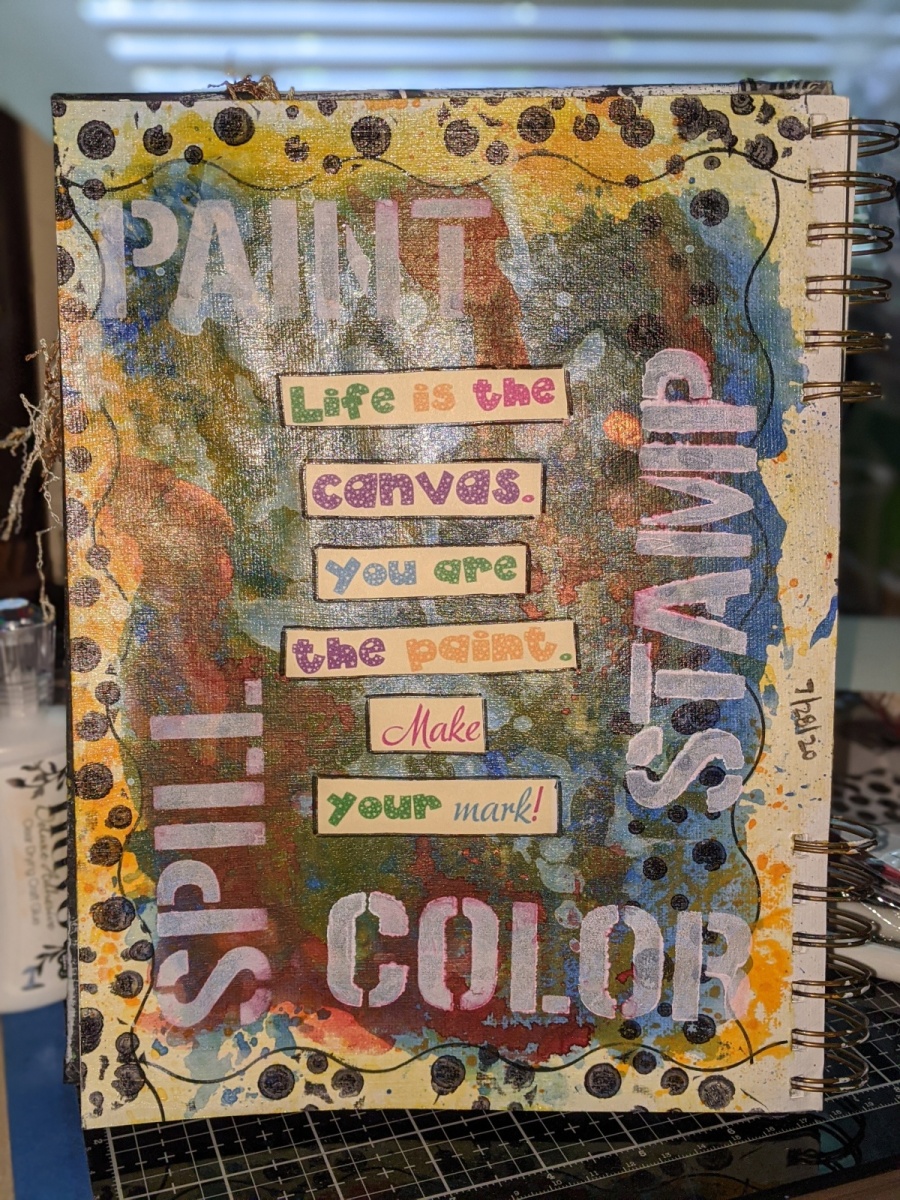 PAINT
Life is the
canvas.
you are
the paint.
Make
your mark!
STAMP
SPILL
COLOR
7/28/20